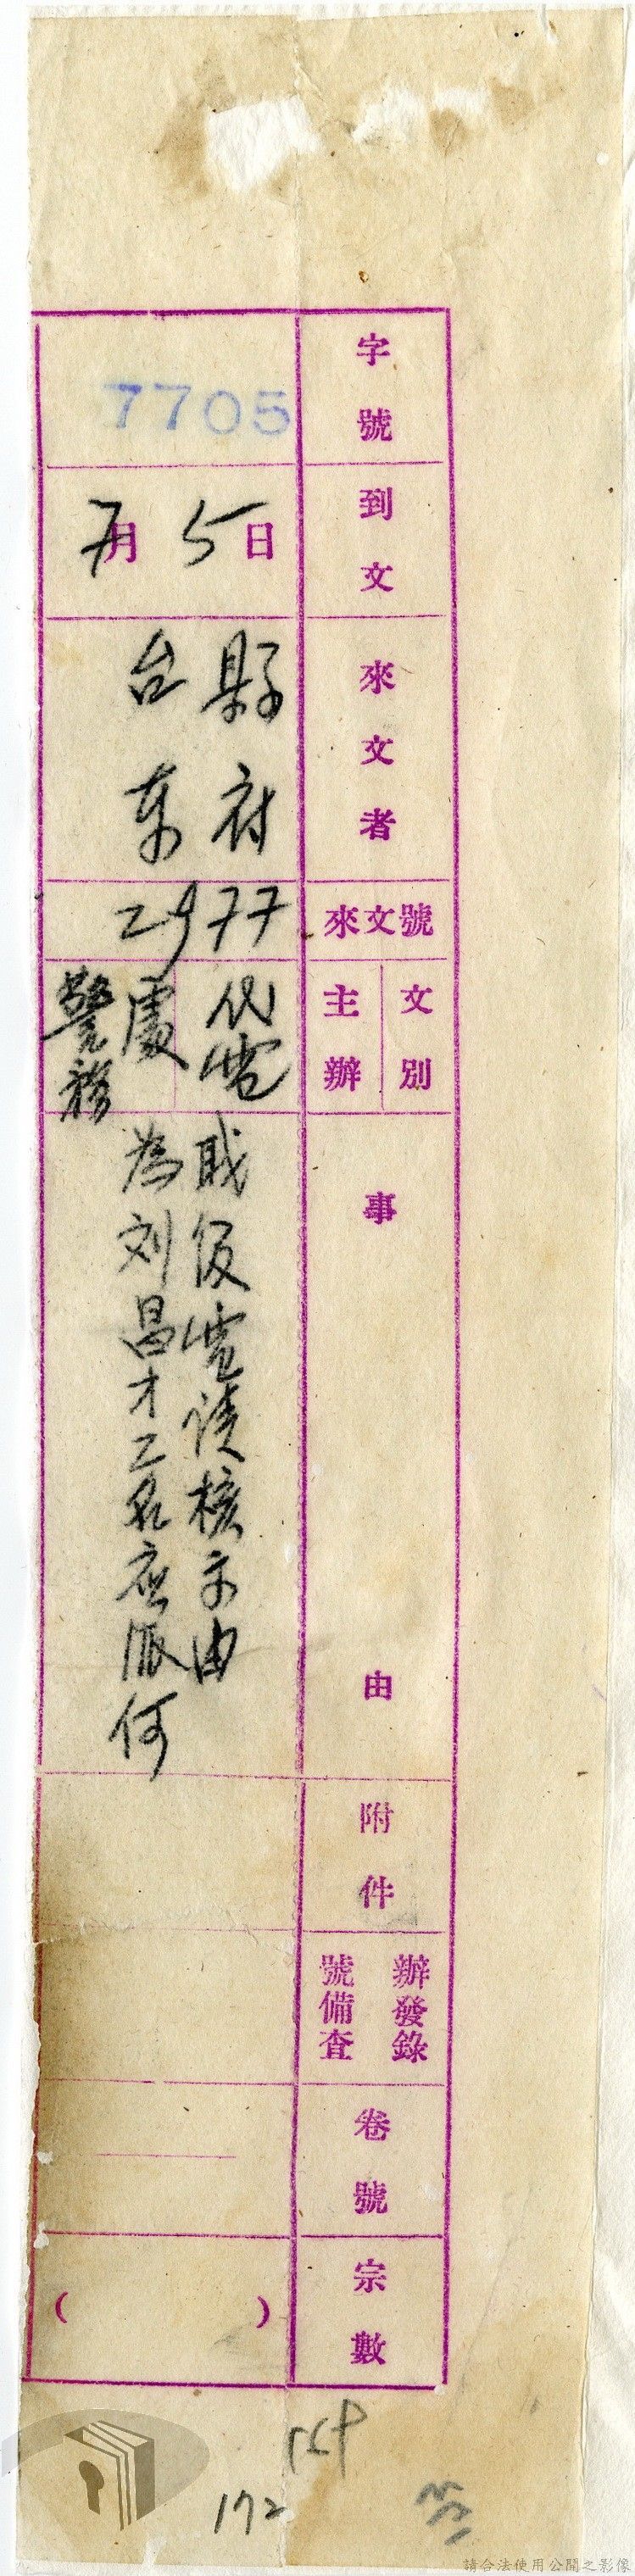 字號
7705
到文
7月5日
來文者
台東
縣府
來文號
2977
文別
代電
主辦
警務
處
事由
為刘昌才二名應派何
職役電請核示由
附件
辦發錄
號備查
卷號
宗數
( )
172
請合法使用公開之影像